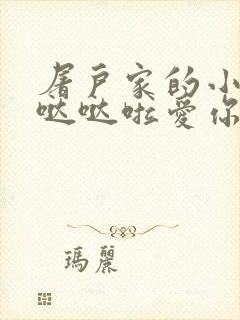 屠戶家的小
哒哒啦愛你
瑪麗